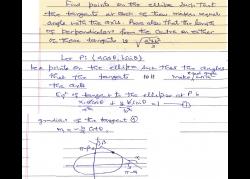 Find points on the ellipse such that
the tangents at each of them makes equal
angles with the axis. Also show that the length
of perpendicular from the centre on either
of these tangents is √(a²+b²)/2
Let P(acosθ, bsinθ)
be a points on the ellipse such that the angles
that the tangent to it makes equal angle with
the axis
Eqⁿ of tangent to the ellipse at P is
x cosθ/a + y sinθ/b = 1 — ①
gradient of the tangent ①
m = -b/a cotθ